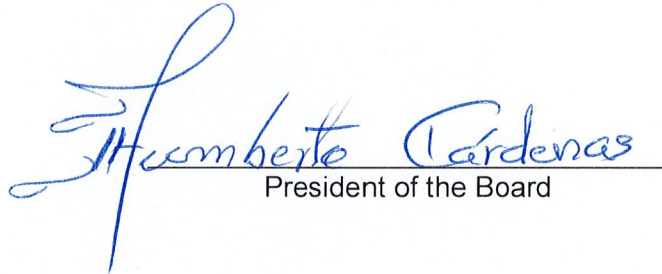 Humberto Cárdenas
President of the Board